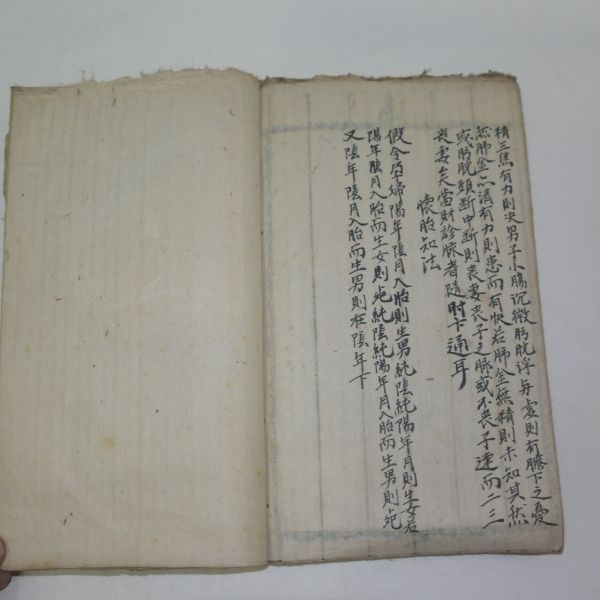 精三焦有力則決男子小腸沉微膀胱浮与虛則有臍下之憂
無肺金亦清有力則患而有快若肺金無精則未知其然
或膀胱頭斷中斷則喪妻喪子之脉或不喪子速而二三
喪妻矣當財診脉者隨財卞通耳
懷胎知法
假令孕婦陽年陰月入胎則生男純陰純陽年月則生女若
陽年陰月入胎而生女則 純陰純陽年月入胎而生男則
又陰年陰月入胎而生男則在陰年下